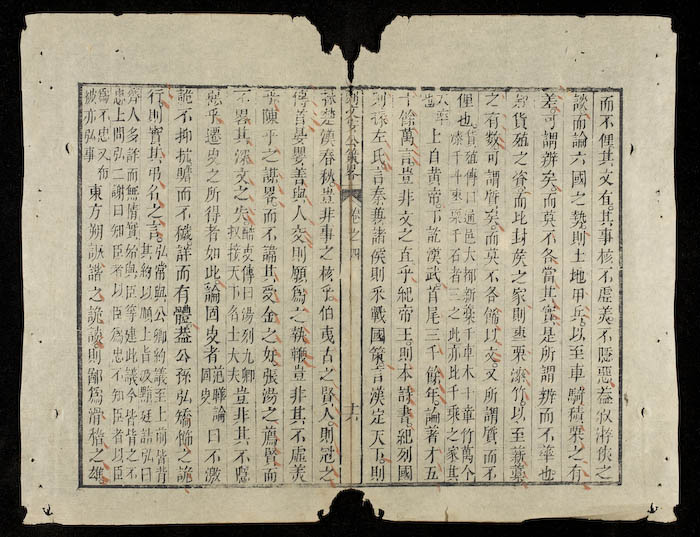 而不俚其文有其事核不虛美不隱惡蓋叙游俠之
談而論六國之勢則土地甲兵以至車騎積粟之有
差可謂辨矣而莫不各當其實是所謂辨而不華也
叙貨殖之資而比封侯之家則棗栗漆竹以至
之有數可謂質矣而莫不各備以文又所謂質而不
俚也貨殖傳曰通邑大都薪藁千車木千章竹萬个
漆千斗棗栗千石者三之此亦比千乘之家其
大率也上自黃帝下訖漢武首尾三千餘年論著才五
十餘萬言豈非文之直乎紀帝王則本詩書紀列國
則採左氏言秦兼諸侯則采戰國策言漢定天下則
談楚漢春秋豈非事之核乎伯夷古之賢人則冠之
傳首晏嬰善與人交則願為之執鞭豈非其不虛美
乎陳平之謀畧而不諱其受金之奸張湯之薦賢而
不畧其深文之失酷吏傳曰湯列九卿
收接天下名士大夫豈非其不隱
惡乎遷史之所得者如此論固史者范曄論
固史曰不激
詭不抑抗贍而不穢詳而有體蓋公孫弘矯飾之詭
行則實其弔名之言弘常與公卿約議至上前皆背
其約以順上旨汲黯廷詰弘曰
齊人多詐而無情實始與臣等建此議今皆背之不
忠上問弘弘謝曰知臣者以臣為忠不知臣者以臣
為不忠又布
被亦弘事東方朔詼諧之詭談則鄙為滑稽之雄
卷之四
十六